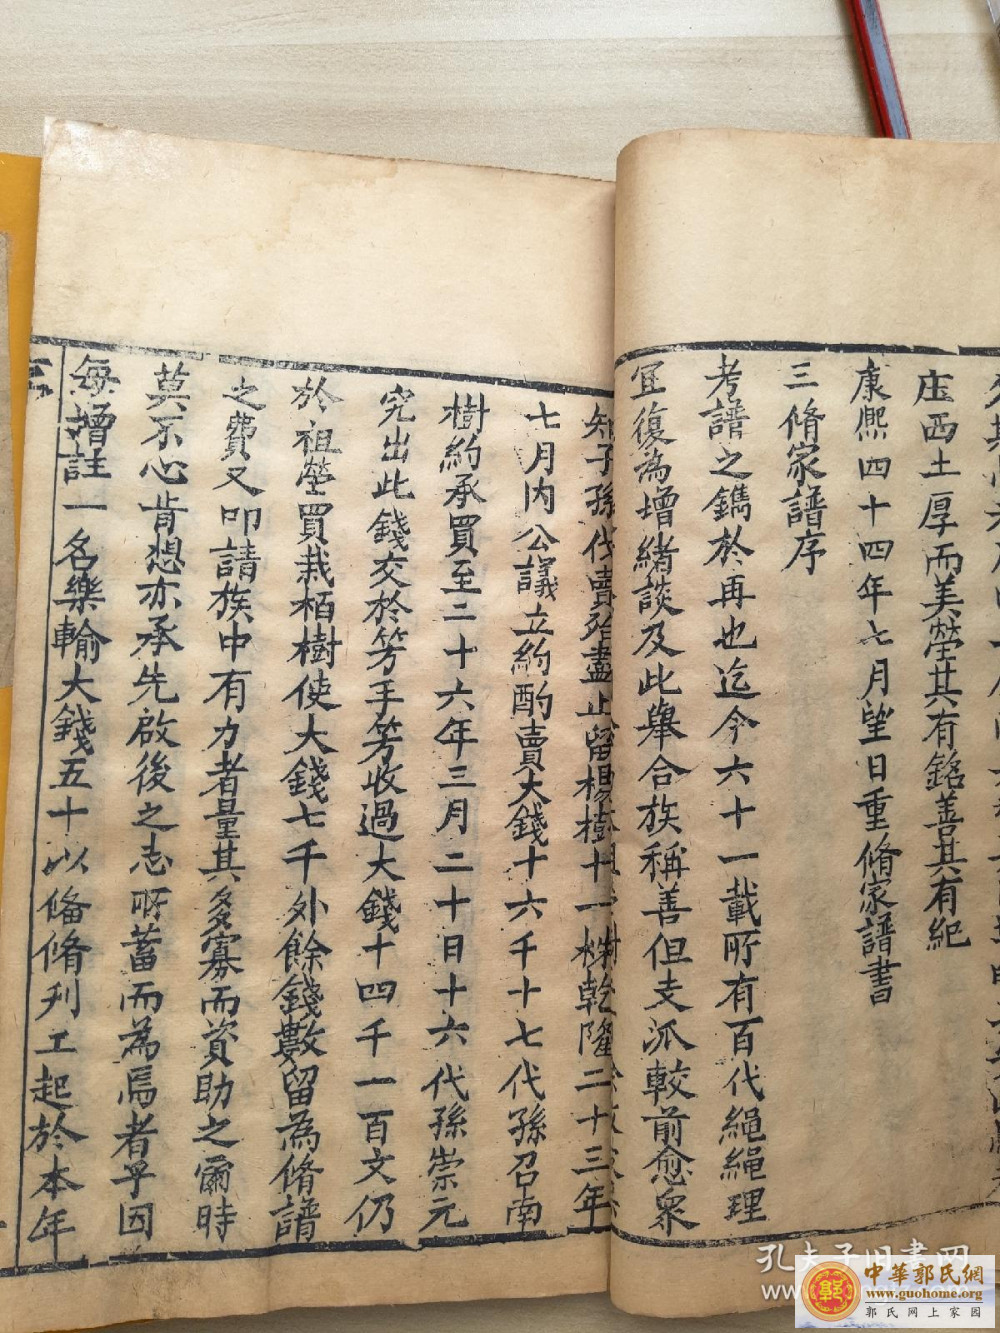 庄西土厚而美塋其有銘善其有紀
康熙四十四年七月望日重脩家譜書
三脩家譜序
考譜之鐫於再也迄今六十一載所有百代繩繩理
宜復為增緒談及此舉合族稱善但支派較前愈衆
知子孫伐賣殆盡止留楊樹十一株乾隆二十三年
七月内公議立約酌賣大錢十六千十七代孫召南
樹約承買至二十六年三月二十日十六代孫崇元
究出此錢交於芳手芳收過大錢十四千一百文仍
於祖塋買栽栢樹使大錢七千外餘錢數留為脩譜
之費又叩請族中有力者量其多寡而資助之爾時
莫不心肯想亦承先啟後之志所蓄而為焉者乎因
每增註一名樂輸大錢五十以偹脩刋工起於本年
孔夫子旧書网
中華郭氏網
www.guohome.org
郭氏网上家园